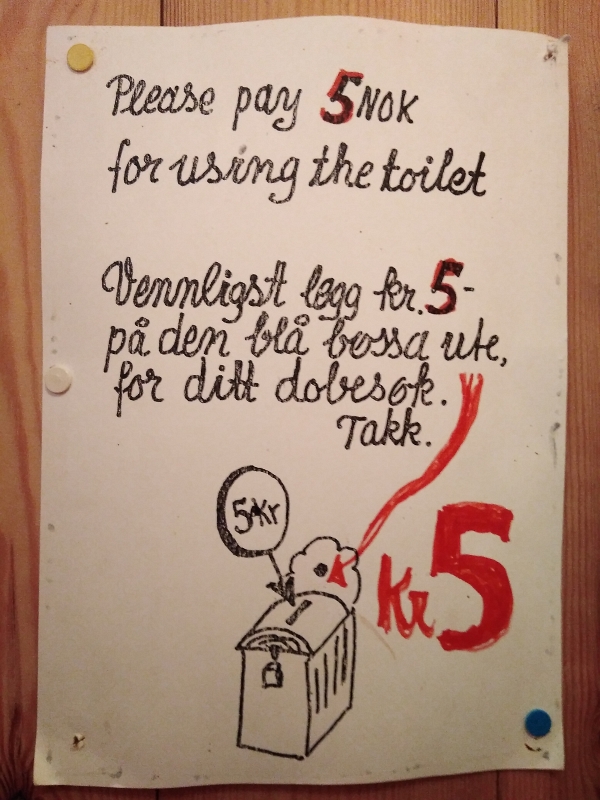 Please pay 5 NOK
for using the toilet
Vennligst legg kr. 5-
på den blå bøssa ute,
for ditt dobesøk.
Takk.
5 Kr
Kr 5